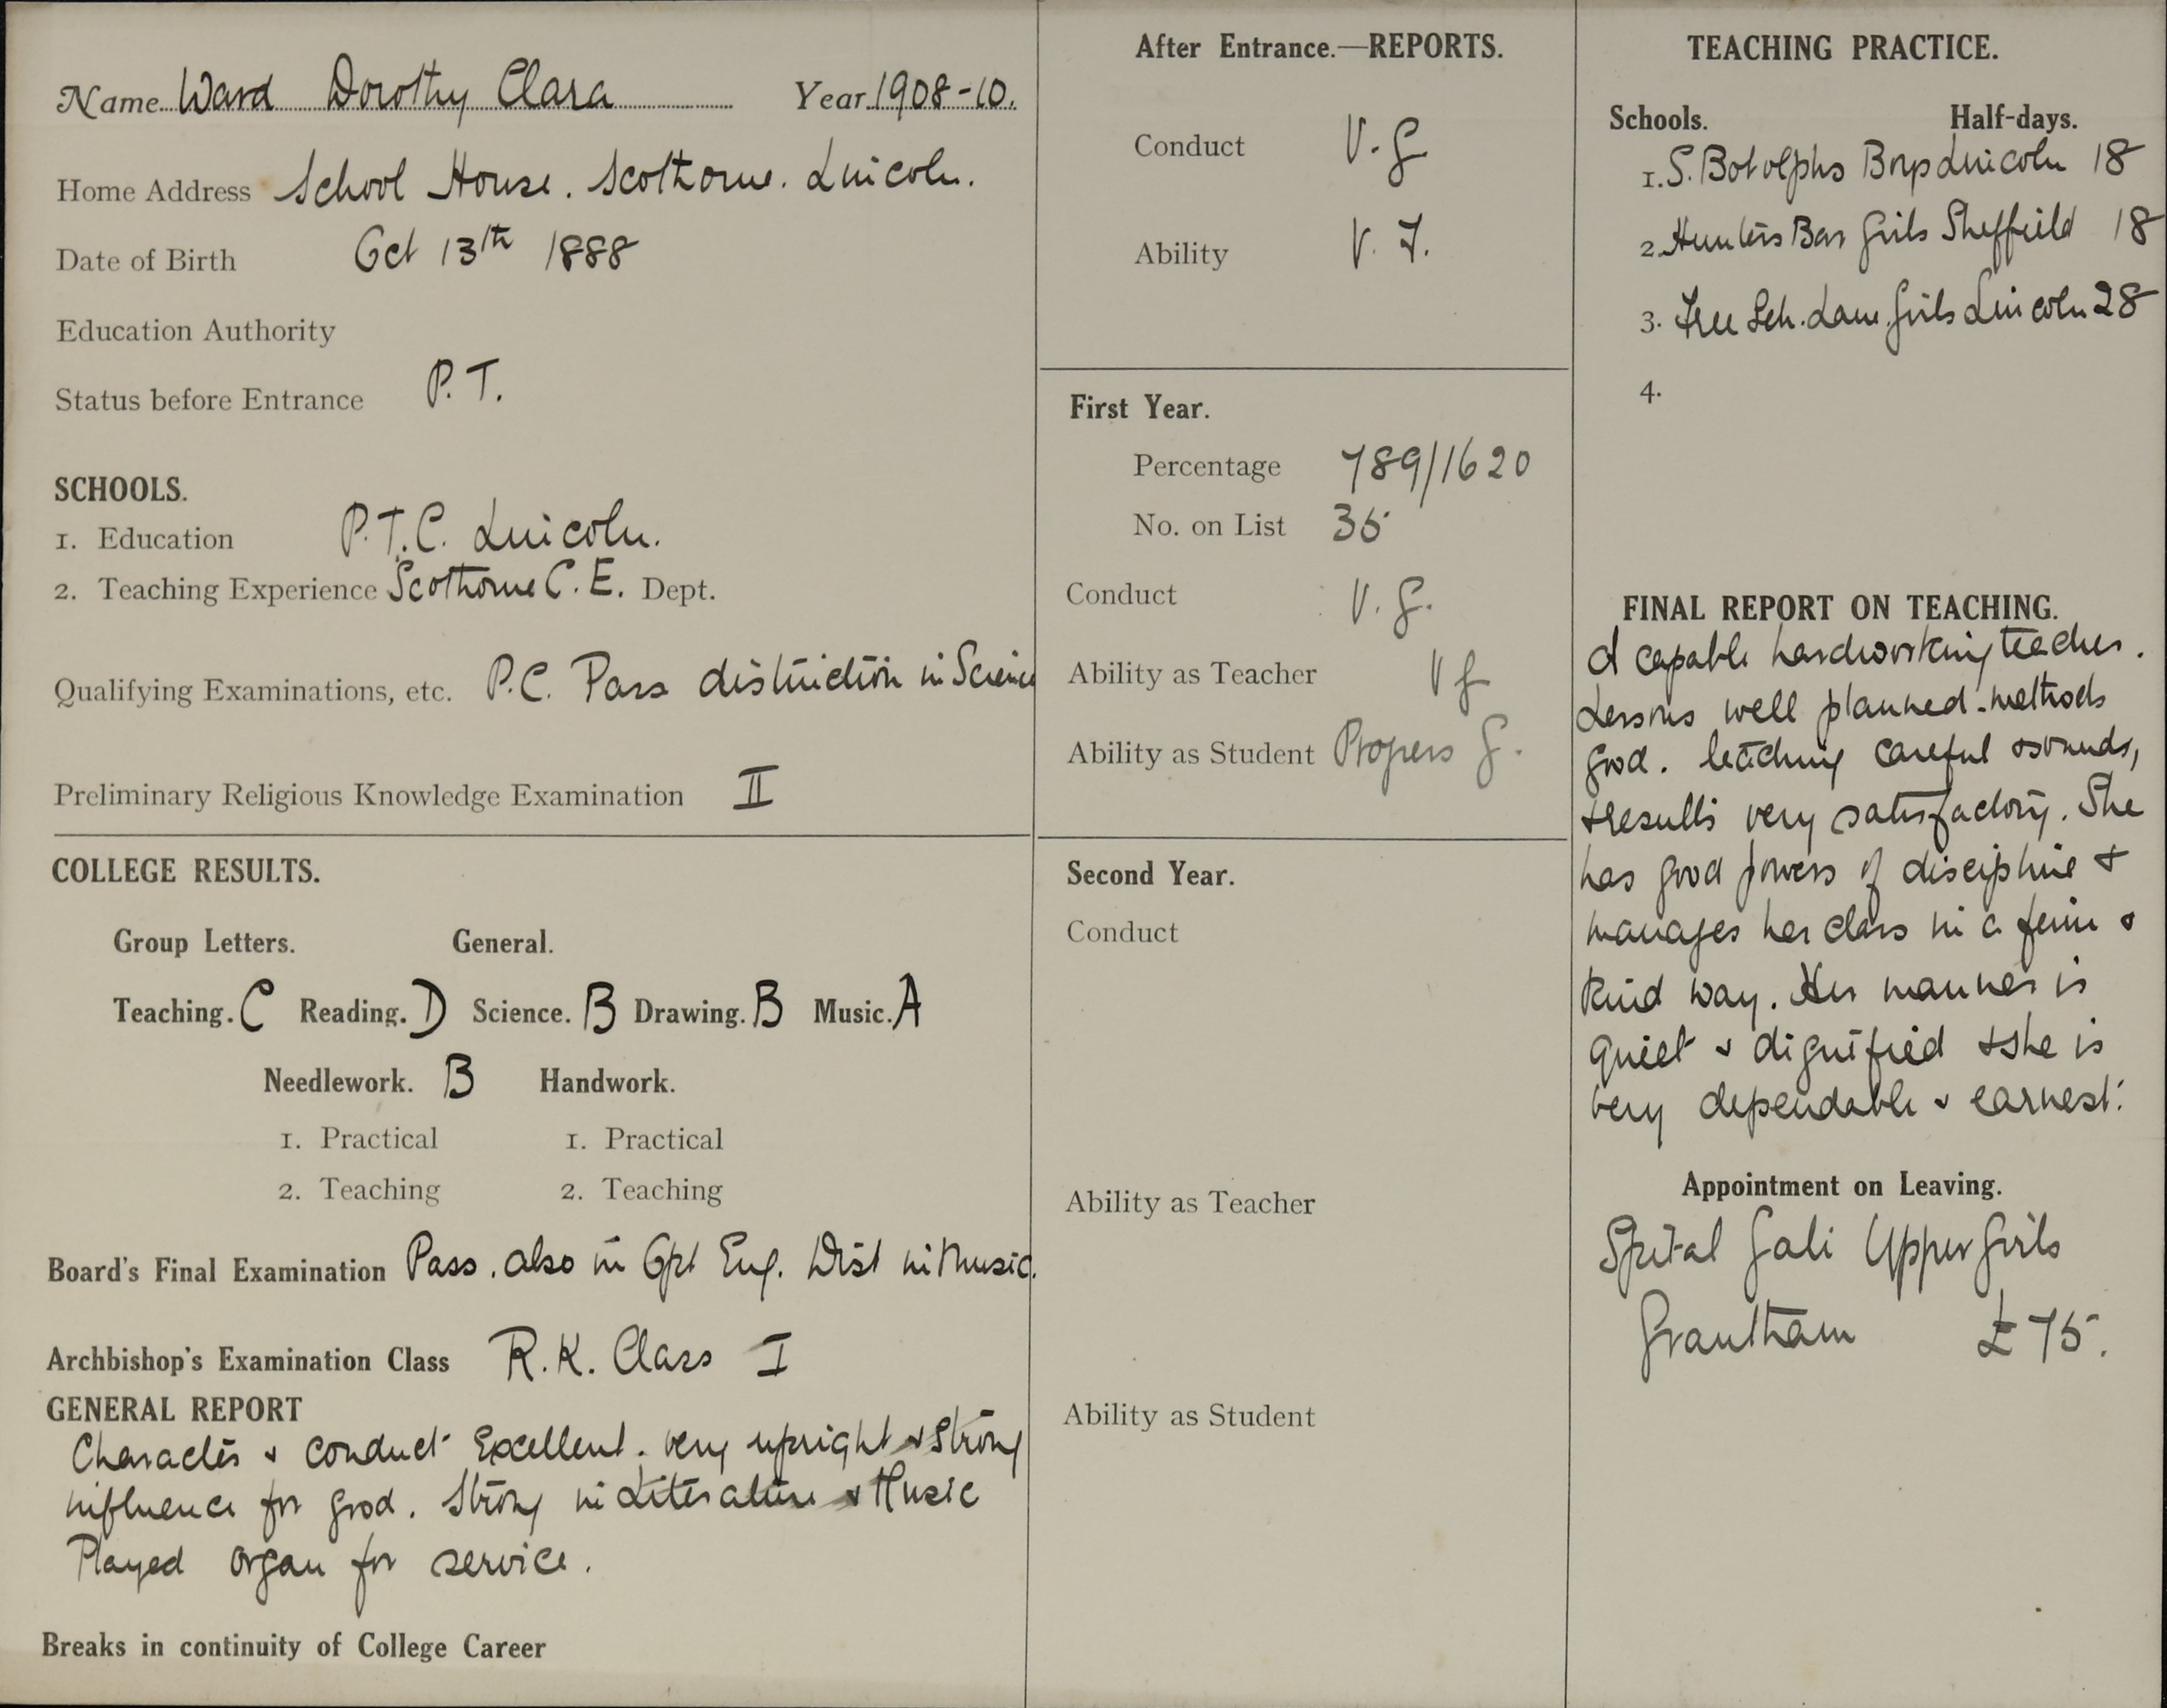 Name Ward Dorothy Clara Year 1908-10.
Home Address School House. Scothorne. Lincoln.
Date of Birth Oct 13th 1888
Education Authority
Status before Entrance P.T.
SCHOOLS.
1. Education P.T.C. Lincoln.
2. Teaching Experience Scothorne C.E. Dept.
Qualifying Examinations, etc. P.C. Pass distinction in Science
Preliminary Religious Knowledge Examination II
COLLEGE RESULTS.
Group Letters. General.
Teaching. C Reading. D Science. B Drawing. B Music. A
Needlework. B Handwork.
1. Practical 1. Practical
2. Teaching 2. Teaching
Board's Final Examination Pass. also in Opt Eng. Dist in Music.
Archbishop's Examination Class R.K. Class I
GENERAL REPORT
Character & conduct Excellent. very upright & strong
influence for good. Strong in Literature & Music
Played organ for service.
Breaks in continuity of College Career
After Entrance.—REPORTS.
Conduct V.g
Ability V.F.
First Year.
Percentage 789/1620
No. on List 35
Conduct V.g.
Ability as Teacher Vg
Ability as Student Progress g.
Second Year.
Conduct
Ability as Teacher
Ability as Student
TEACHING PRACTICE.
Schools. Half-days.
1. S. Botolphs Boys Lincoln 18
2. Hunters Bar Girls Sheffield 18
3. Free Sch. Lane. Girls Lincoln 28
4.
FINAL REPORT ON TEACHING.
A capable hardworking teacher.
Lessons well planned. methods
good. teaching careful & sound,
& results very satisfactory. She
has good powers of discipline &
manages her class in a firm &
kind way. Her manner is
quiet & dignified & she is
very dependable & earnest.
Appointment on Leaving.
Spital Gate Upper Girls
Grantham £75.